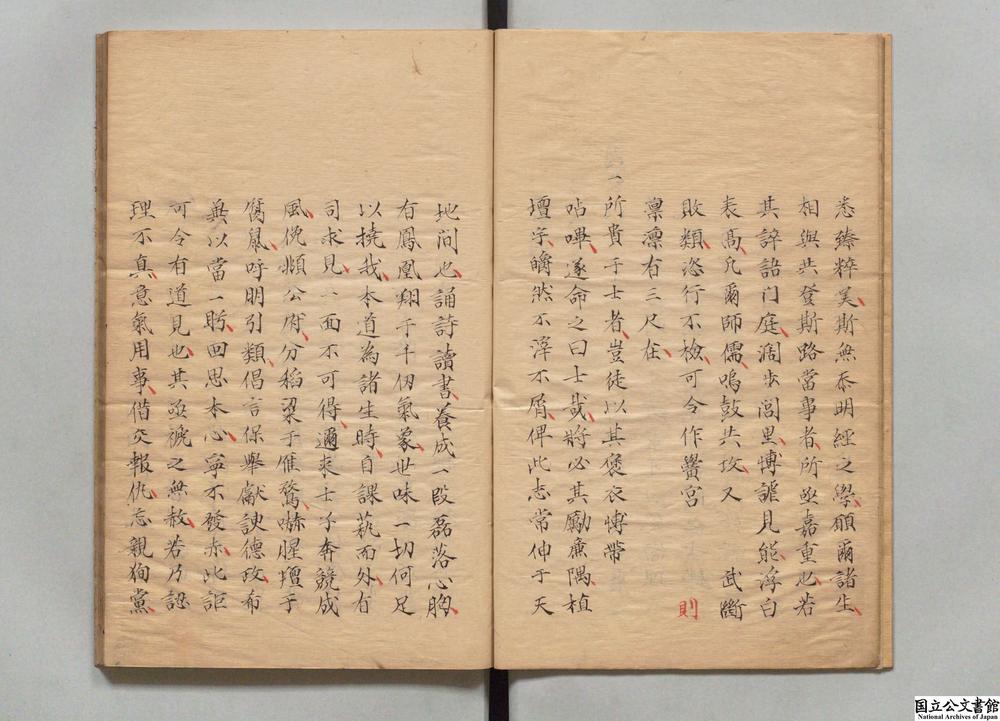 悉臻粹美斯無忝明經之學願爾諸生
相與共登斯路當事者所亟嘉重也若
其誶語门庭濶步閭里愽謔見能浮白
表髙凡爾師儒鳴鼓共攻又 武斷
敗類恣行不檢可令作黌宮 則
禀凛有三尺在
一所貴于士者豈徒以其褒衣愽帶
呫嗶遂命之曰士哉將必其勵亷隅植
壇宇皭然不滓不屑俾此志常伸于天
地间也誦詩讀書養成一段磊落心胸
有鳳凰翔于千仞氣象世味一切何足
以撓我本道為諸生時自課蓺而外有
司求見一面不可得邇来士子奔競成
風俛頫公府分稻粱于雁鶩嚇腥壇于
腐䑕呼朋引類倡言保舉獻諛德政希
兾以當一盻回思本心寧不發赤此詎
可令有道見也其亟褫之無赦若乃認
理不真意氣用事偕交報仇忘親狥黨
国立公文書館
National Archives of Japan